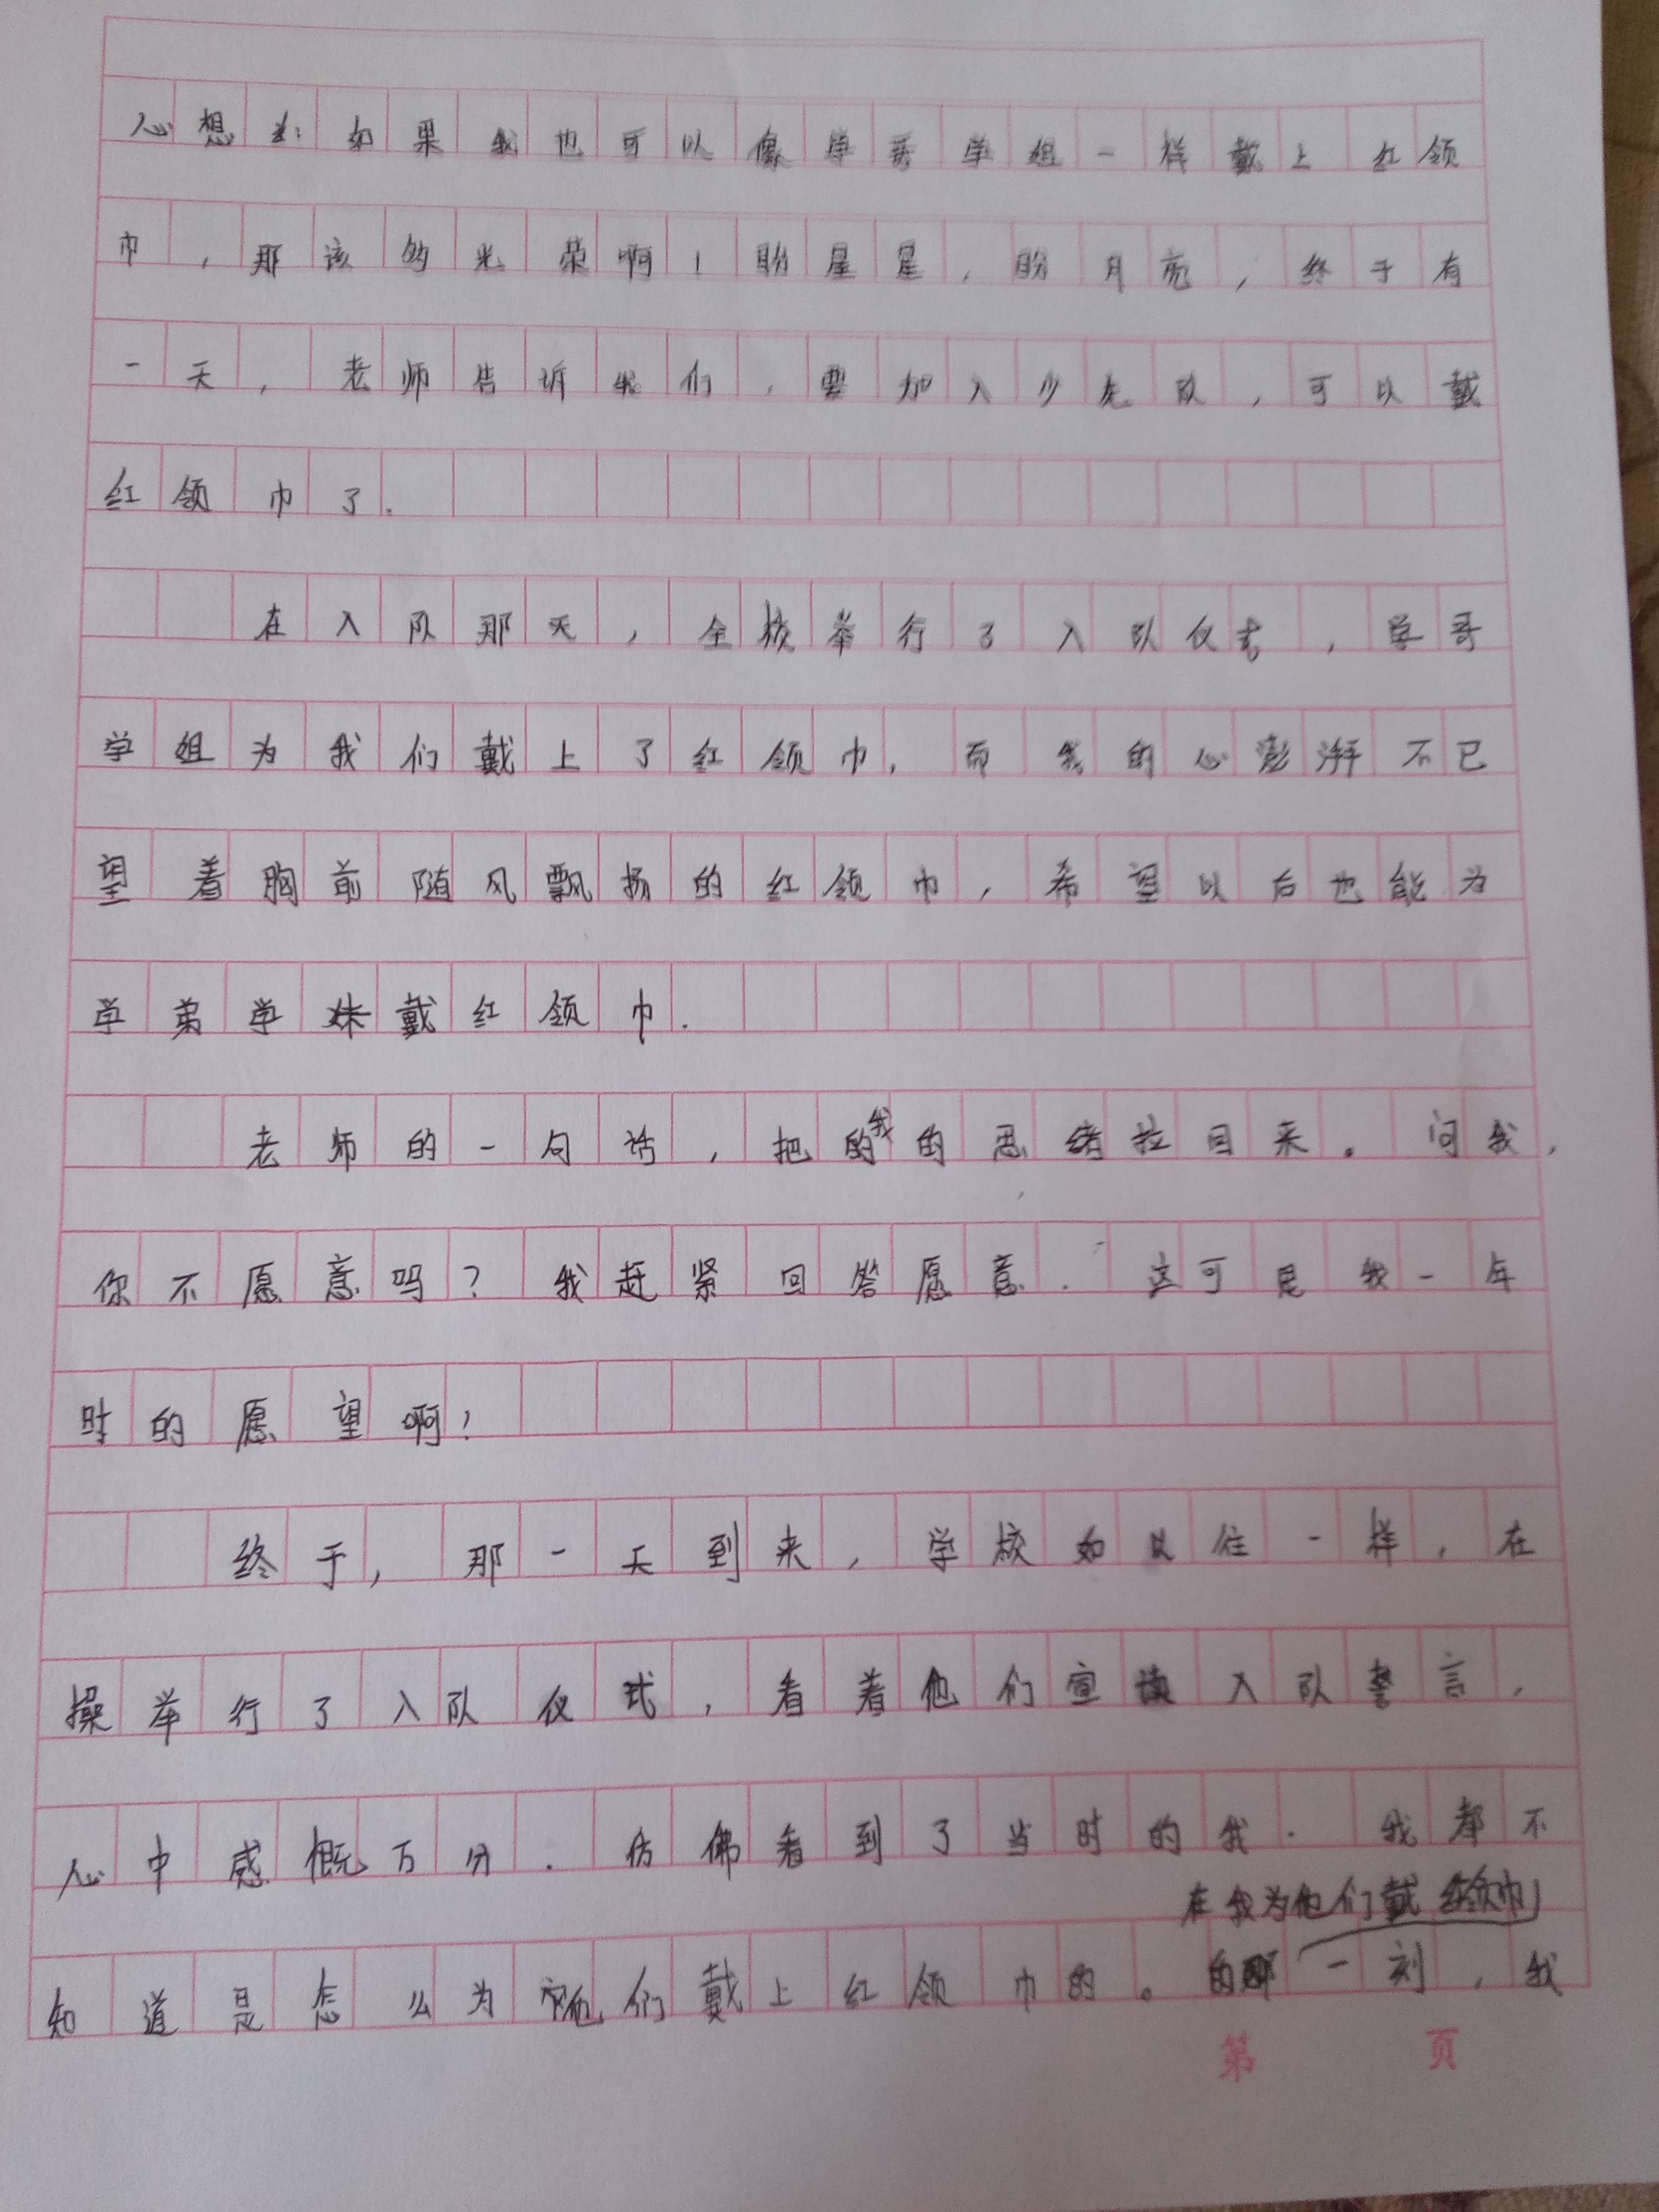 心想为：如果我也可以像学哥学姐一样戴上红领
巾，那该的光荣啊！盼星星，盼月亮，终于有
一天，老师告诉我们，要加入少先队，可以戴
红领巾了.
在入队那天，全校举行了入队仪式，学哥
学姐为我们戴上了红领巾，而我的心澎湃不已
望着胸前随风飘扬的红领巾，希望以后也能为
学弟学妹戴红领巾.
老师的一句话，把的我的思绪拉回来。问我，
你不愿意吗？我赶紧回答愿意.这可是我一年
时的愿望啊！
终于，那一天到来，学校如以往一样，在
操举行了入队仪式，看着他们宣读入队誓言，
心中感慨万分.仿佛看到了当时的我.我都不
在我为他们戴红领巾
知道是怎么为他们戴上红领巾的。的那一刻，我
第 页